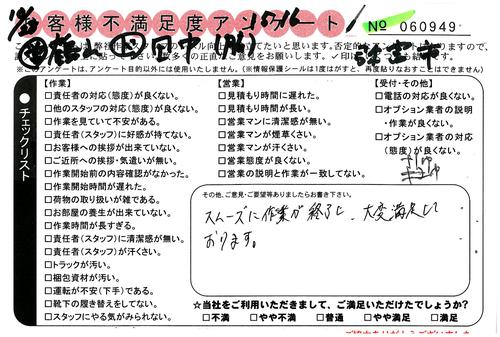 お客様不満足度アンケート
№ 060949
※このアンケートは、アンケート目的以外には使用いたしません。(※情報保護シールは1度はがすと、再度貼りなおすことはできません)
チェックリスト
【作業】
□責任者の対応(態度)が良くない。
□他のスタッフの対応(態度)が良くない。
□作業を見ていて不安がある。
□責任者(スタッフ)に好感が持てない。
□お客様への挨拶が出来ていない。
□ご近所への挨拶・気遣いが無い。
□作業開始前の内容確認がなかった。
□作業開始時間が遅れた。
□荷物の取り扱いが雑である。
□お部屋の養生が出来ていない。
□作業時間が長すぎる。
□責任者(スタッフ)に清潔感が無い。
□責任者(スタッフ)が汗くさい。
□トラックが汚い。
□梱包資材が汚い。
□運転が不安(下手)である。
□靴下の履き替えをしてない。
□スタッフにやる気がみられない。
【営業】
□見積もり時間に遅れた。
□見積もり時間が長い。
□営業マンに清潔感が無い。
□営業マンが煙草くさい。
□営業マンが汗くさい。
□営業態度が良くない。
□営業の説明と作業が一致してない。
【受付・その他】
□電話の対応が良くない。
□オプション業者の説明
・作業が良くない。
□オプション業者の対応
(態度)が良くない。
その他、ご意見・ご要望等ありましたらお書き下さい。
スムーズに作業が終了し、大変満足して
おります。
☆当社をご利用いただきまして、ご満足いただけたでしょうか?
□不満 □やや不満 □普通 □やや満足 □満足